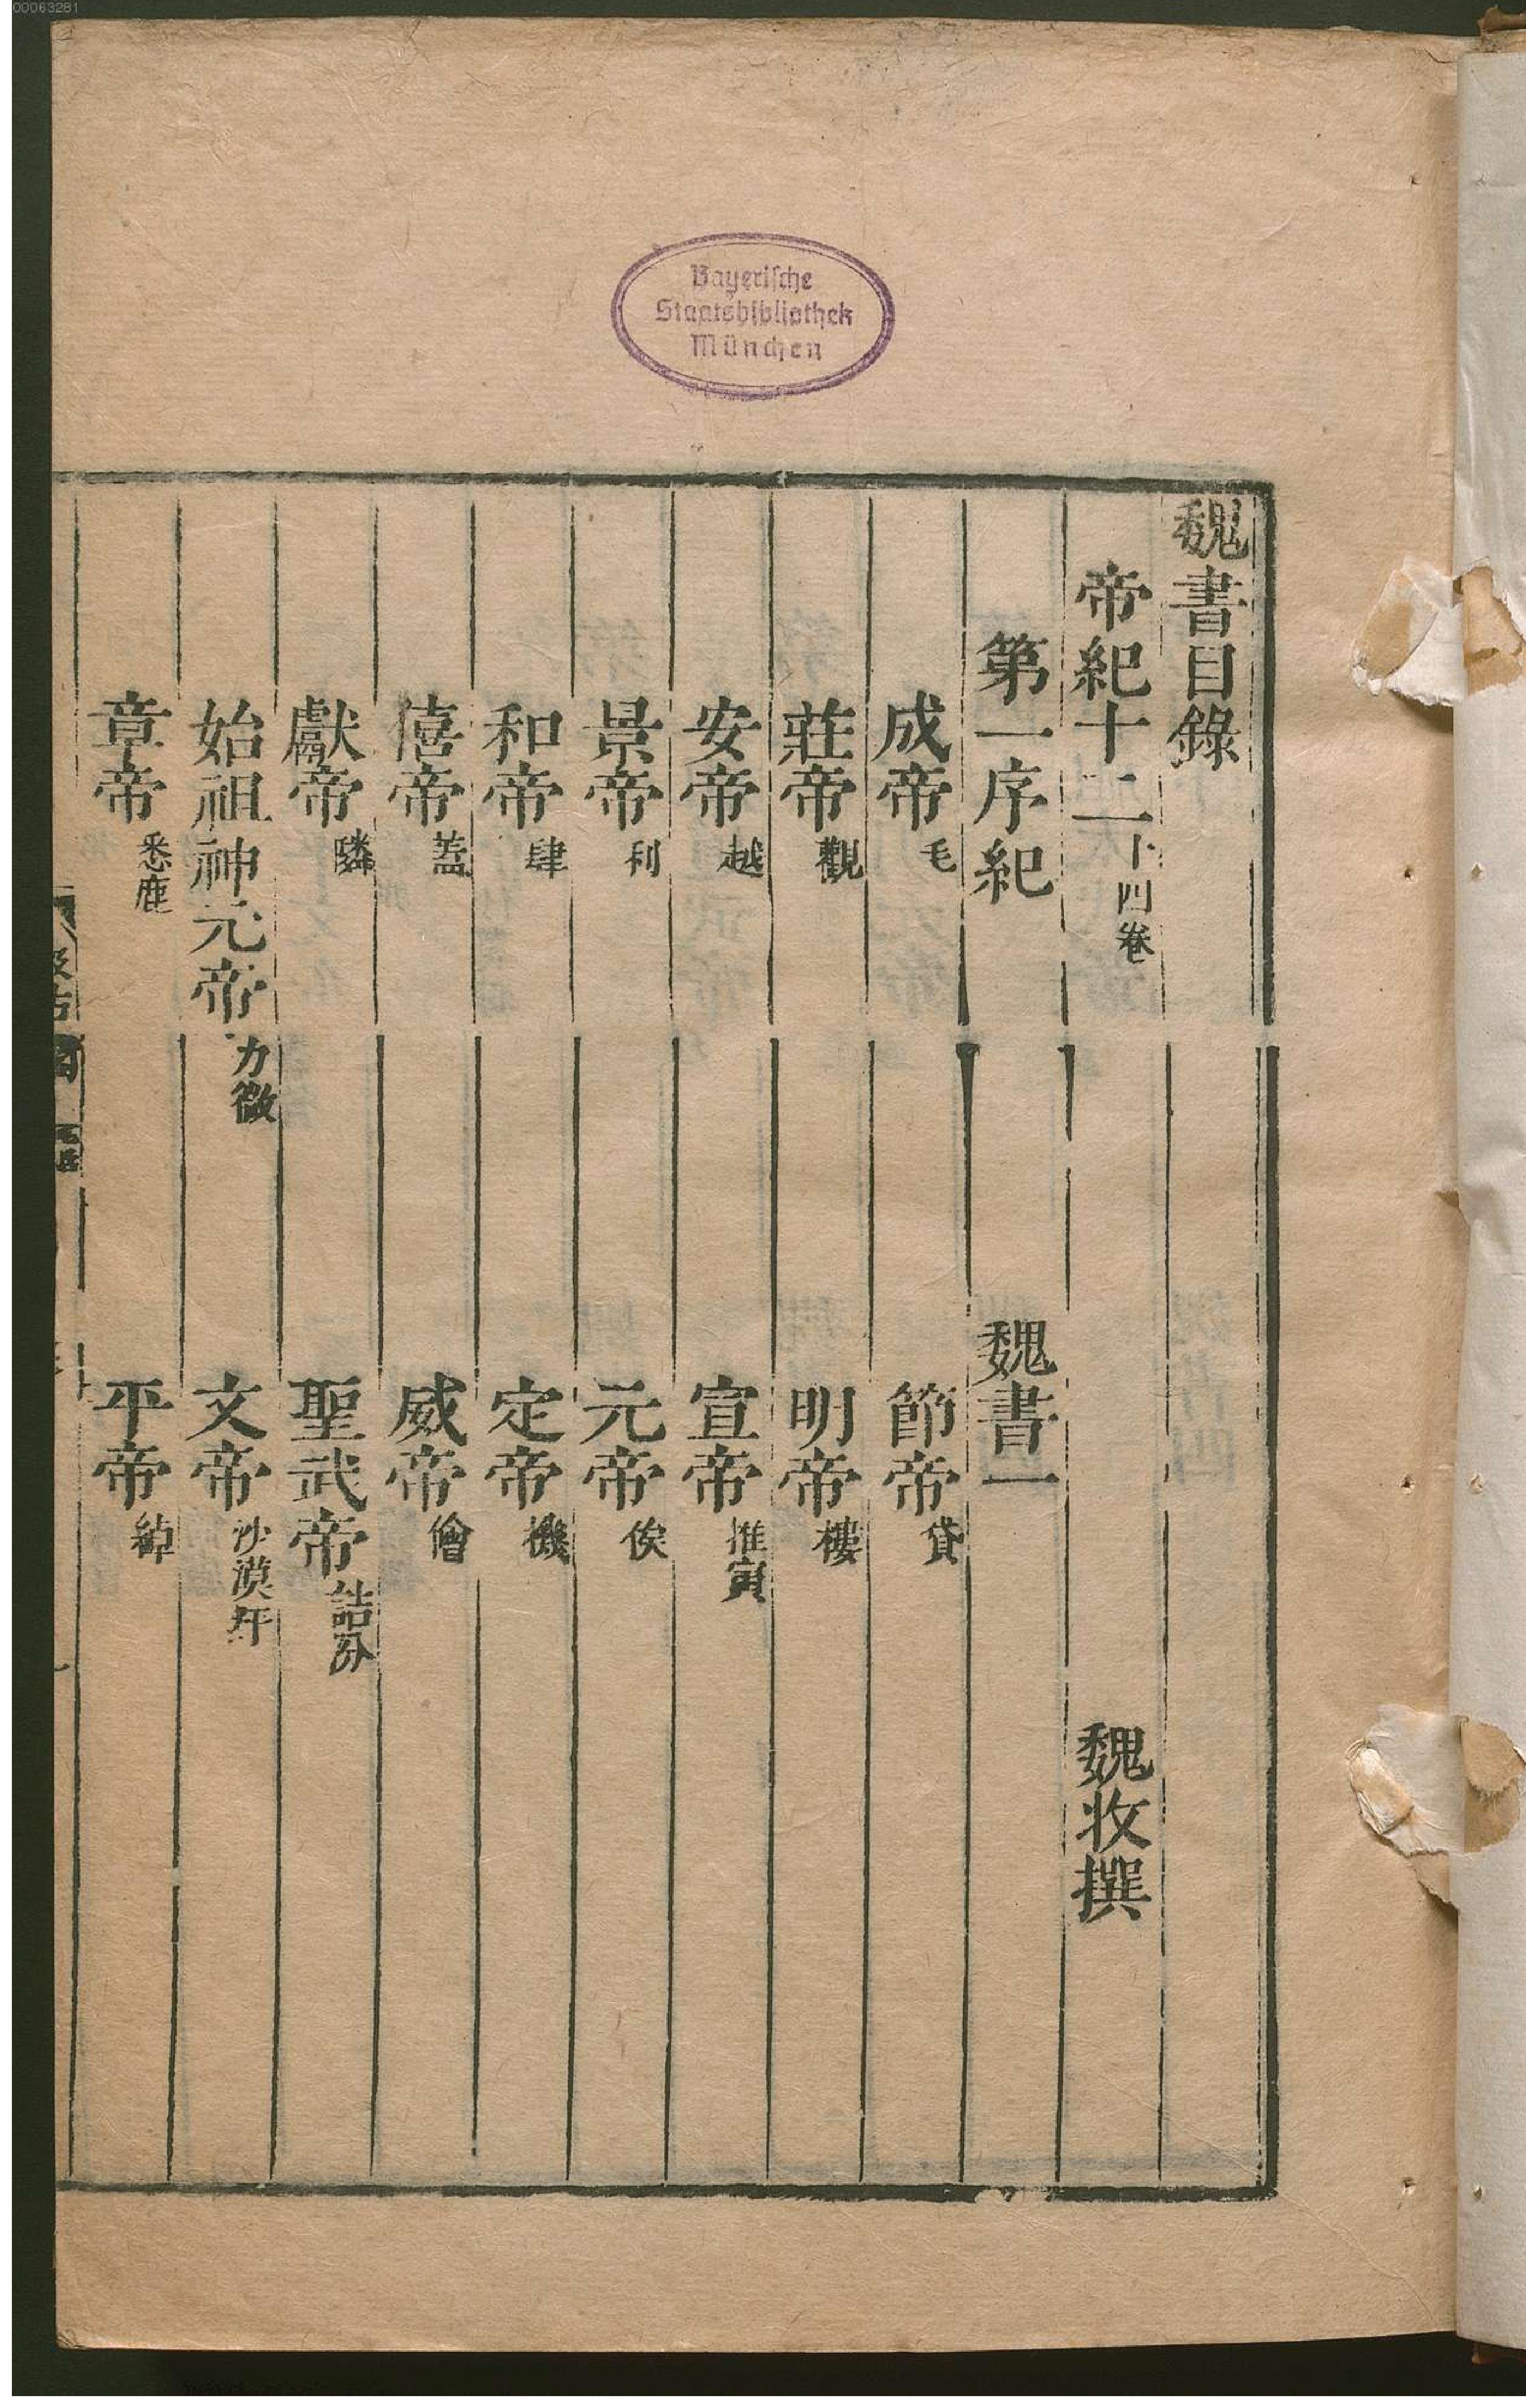 00063281
Bayerische
Staatsbibliothek
München
魏書目錄
帝紀十二卜四卷 魏收撰
第一序紀 魏書一
成帝毛 節帝貸
莊帝觀 明帝樓
安帝越 宣帝推寅
景帝利 元帝俟
和帝肆 定帝機
僖帝蓋 威帝儈
獻帝隣 聖武帝詰汾
始祖神元帝力微 文帝沙漠汗
章帝悉鹿 平帝綽